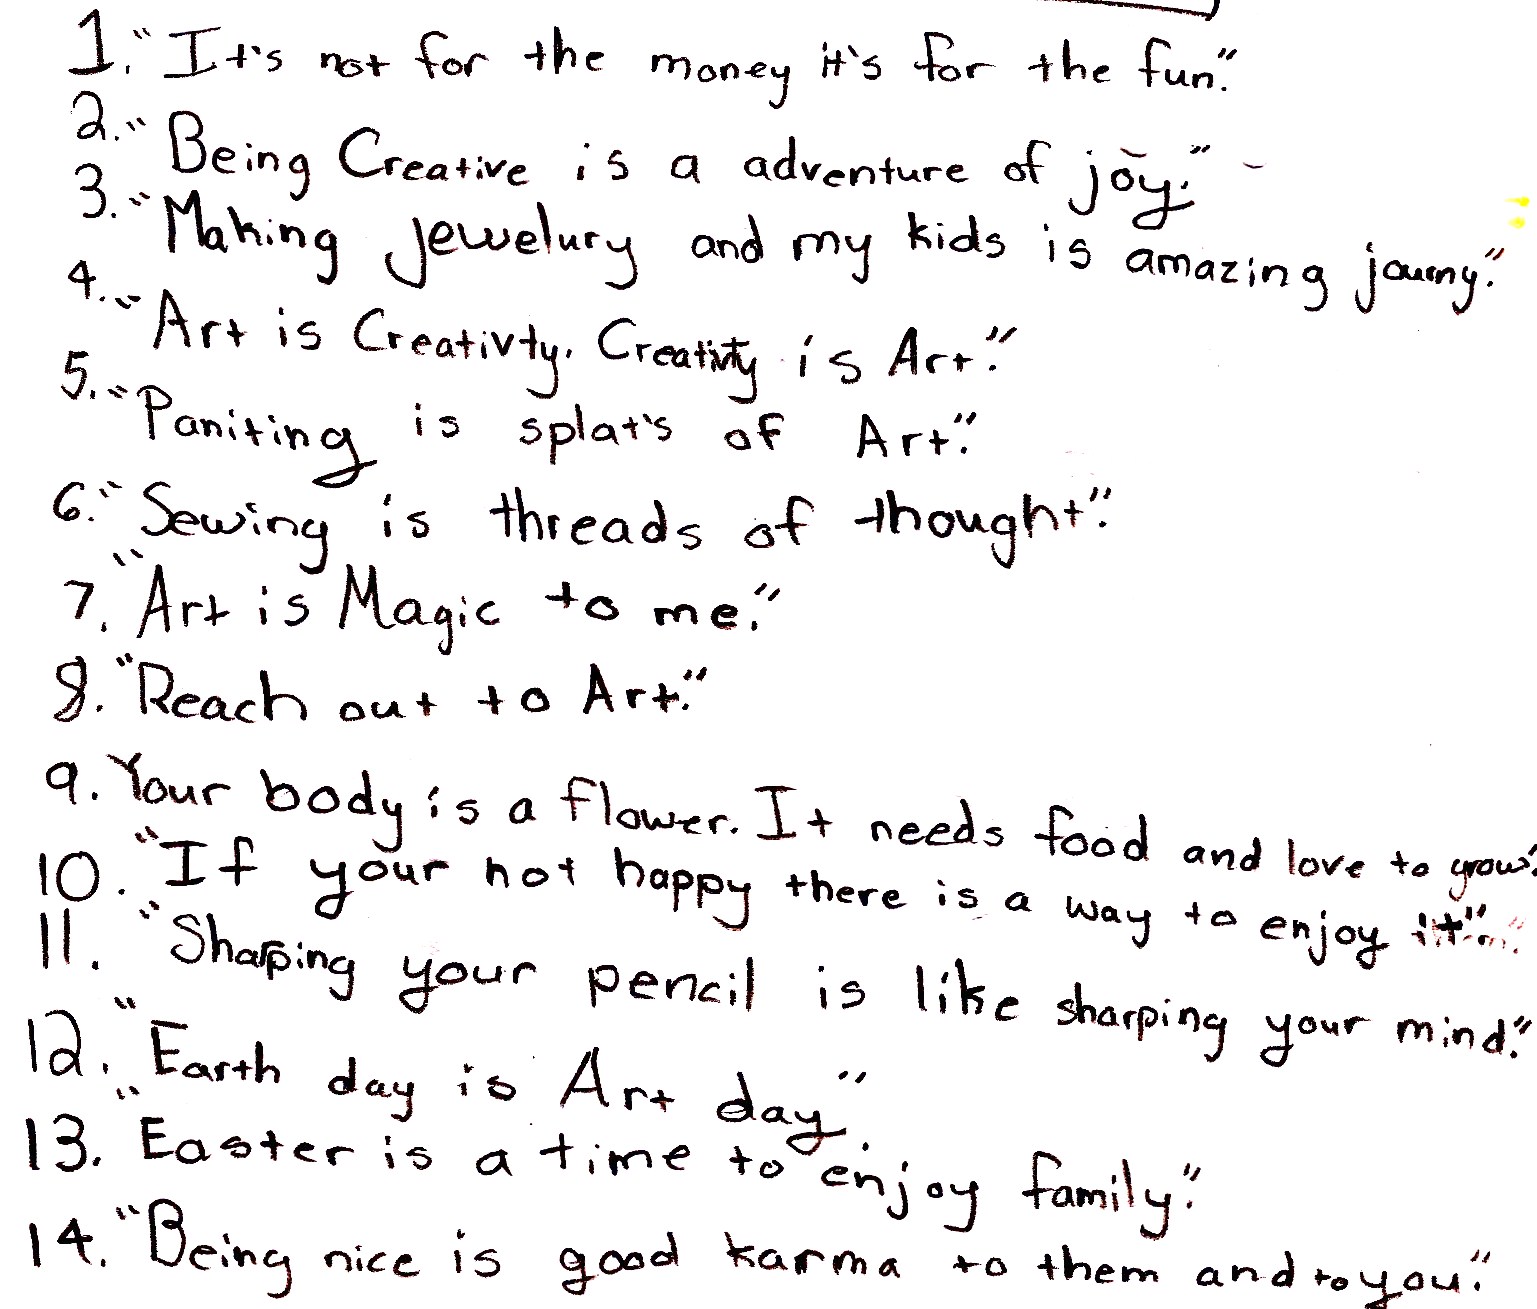 1. "It's not for the money it's for the fun."
2. "Being Creative is a adventure of joy."
3. "Making jewelury and my kids is amazing journy."
4. "Art is Creativty. Creativity is Art."
5. "Paniting is splat's of Art."
6. "Sewing is threads of thought."
7. "Art is Magic to me."
8. "Reach out to Art."
9. Your body is a flower. It needs food and love to grow.
10. "If your not happy there is a way to enjoy it".
11. "Sharping your pencil is like sharping your mind."
12. "Earth day is Art day".
13. "Easter is a time to enjoy family."
14. "Being nice is good karma to them and to you."